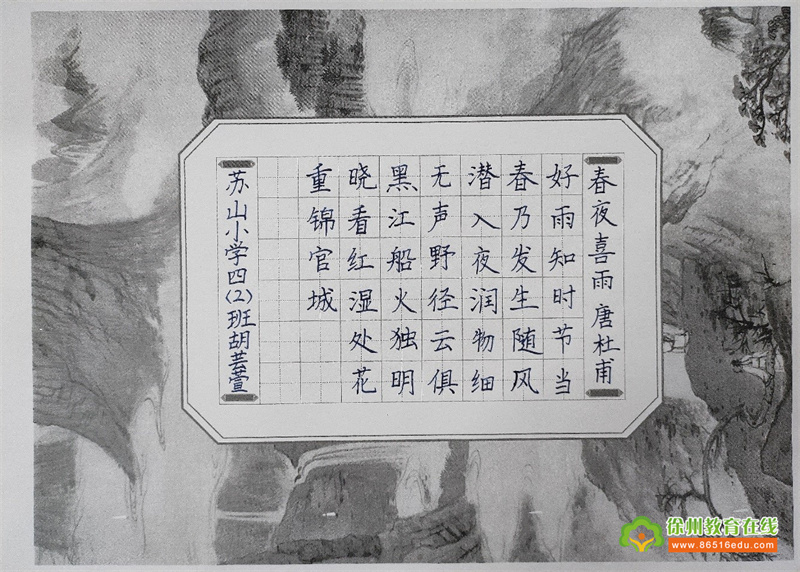 春夜喜雨 唐杜甫
好雨知时节当
春乃发生随风
潜入夜润物细
无声野径云俱
黑江船火独明
晓看红湿处花
重锦官城
苏山小学四(2)班胡芸萱
徐州教育在线
www.86516edu.com